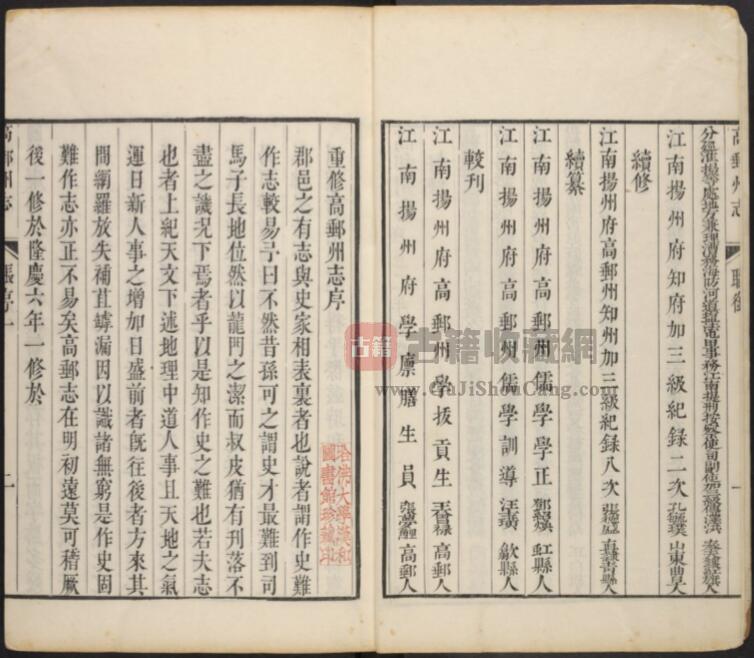 高郵州志
職銜
江南揚州府知府加三級紀錄二次
山東曲阜人
續修
江南揚州府高郵州知州加三級紀錄八次
續纂
江南揚州府高郵州儒學學正
虹縣人
江南揚州府高郵州儒學訓導
歙縣人
較刊
江南揚州府高郵州學拔貢生
高郵人
江南揚州府學廩膳生員
高郵人
重修高郵州志序
郡邑之有志與史家相表裏者也說者謂作史難
作志較易予曰不然昔孫可之謂史才最難到司
馬子長地位然以龍門之潔而叔皮猶有刊落不
盡之譏況下焉者乎以是知作史之難也若夫志
也者上紀天文下述地理中道人事且天地之氣
運日新人事之增加日盛前者旣往後者方來其
間網羅放失補苴罅漏因以識諸無窮是作史固
難作志亦正不易矣高郵志在明初遠莫可稽厥
後一修於隆慶六年一修於
高郵州志
張序一
哈佛大學漢和
圖書館珍藏印
古籍
古籍收藏網
www.GuJiShouCang.com